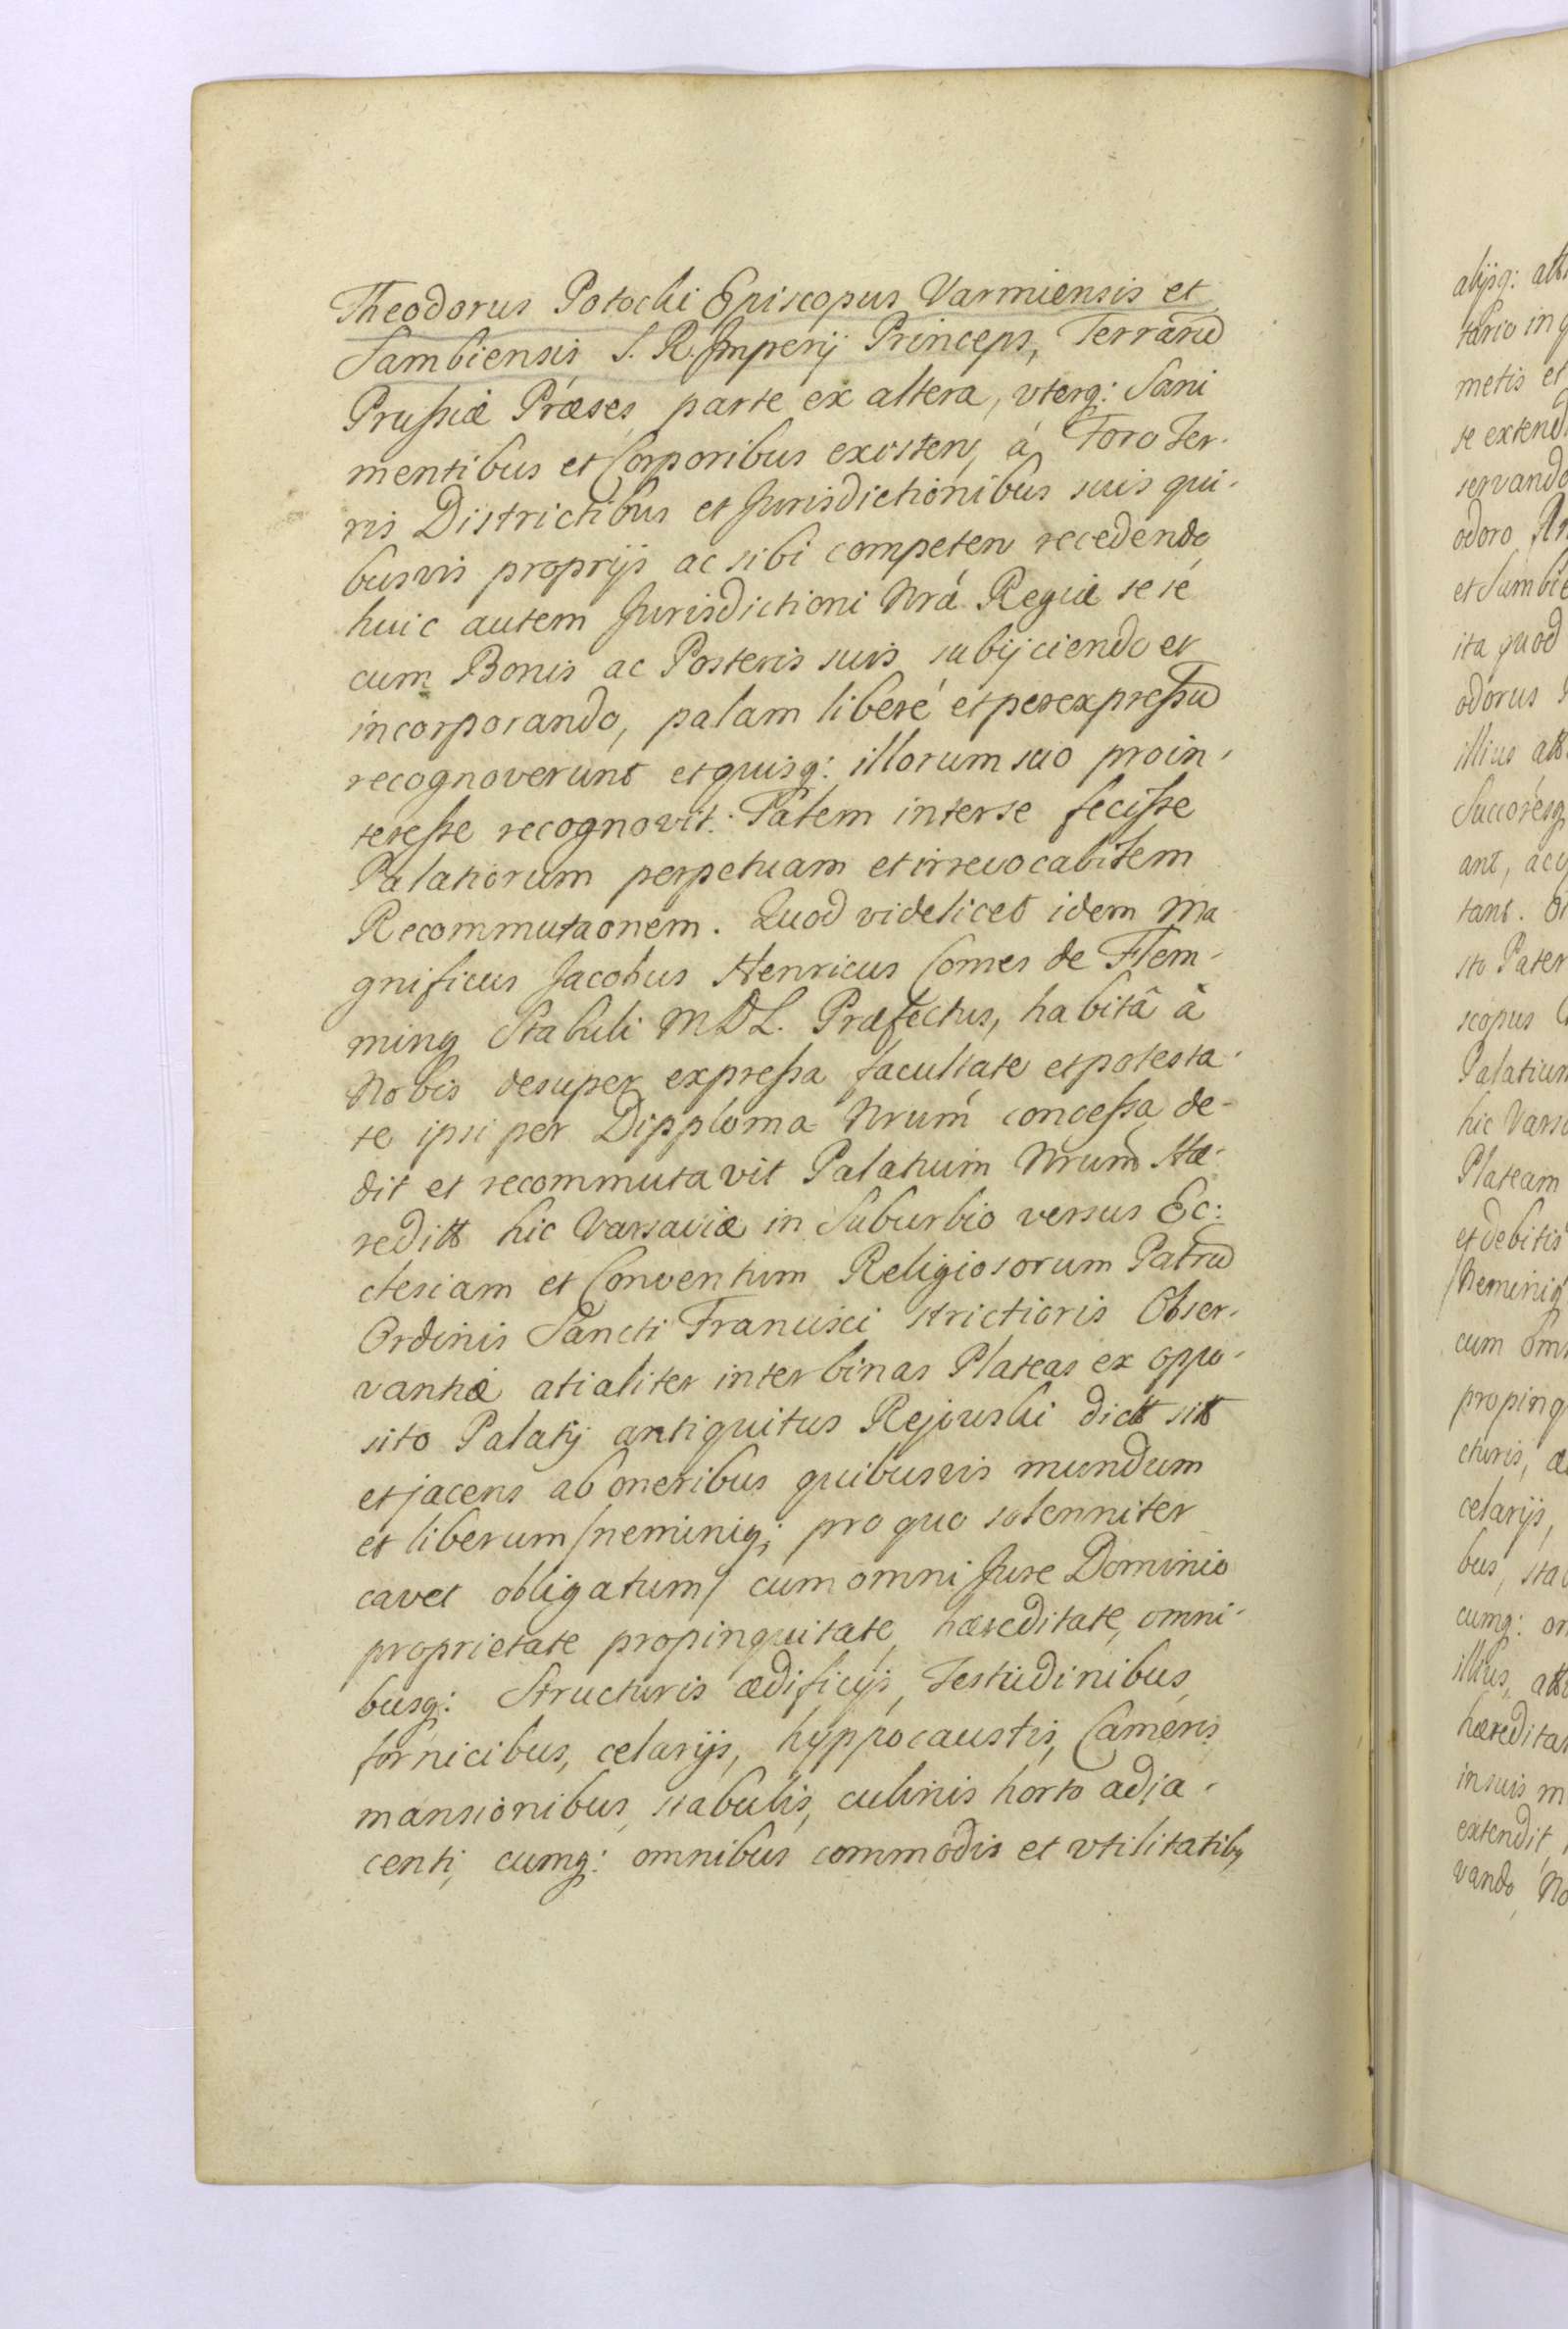 Theodorus Potocki Episcopus Varmiensis et
Sambiensis, S. R. Imperij Princeps, Terrarũ
Prußiæ Præses, parte ex altera, vterq: Sani
mentibus et Corporibus existen, á Foro Ter-
ris Districtibus et Jurisdictionibus suis qui-
busvis proprijs ac sibi competen recedendo
huic autem Jurisdictioni Nrá Regiæ sese
cum Bonis ac Posteris suis subijciendo et
incorporando, palam liberé et perexpreßũ
recognoverunt et quisq: illorum suo proin-
tereße recognovit. Talem interse feciße
Palatiorum perpetuam et irrevocabilem
Recommutaonem. Quod videlicet idem Ma-
gnificus Jacobus Henricus Comes de Flem-
ming Stabuli M D L. Præfectus, habitâ à
Nobis desuper expreßa facultate et potesta-
te ipsi per Dipploma Nrum conceßa de-
dit et recommutavit Palatium Nrum Hæ-
redittt hic Varsaviæ in Suburbio versus Ec:
clesiam et Conventum Religiosorum Patrũ
Ordinis Sancti Francisci strictioris Obser-
vantiæ atialiter inter binas Plateas ex oppo-
sito Palatij antiquitus Rejowski dictt sittt
et jacens ab oneribus quibusvis mundum
et liberum /neminiq; pro quo solenniter
cavet obligatum/ cum omni Jure Dominio
proprietate propinquitate, hæreditate, omni-
busq: Structuris ædificijs, Testudinibus,
fornicibus, celarijs, hyppocaustis, Cameris
mansionibus, stabulis, culinis horto adja-
centi, cumq: omnibus commodis et vtilitatibq
alijsq:
metis et
se extend
servando
odoro
ita quod
odorus
illius
ant,
tant.
sto Pater
scopus
Palatium
hic Vars
Plateam
et debitis
/Neminiq
cum om
propinq
cturis, æ
celarijs,
bus, sta
cumq: om
illius,
hæredita
in suis m
extendit,
vando, No